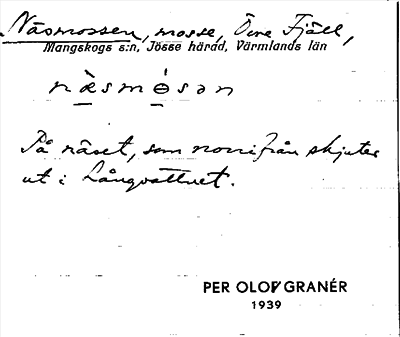 Näsmossen, mosse, Övre Fjäll,
Mangskogs s:n, Jösse härad, Värmlands län
næ̀smósən
På näset, som norrifrån skjuter
ut i Långvattnet.
PER OLOF GRANÉR
1939